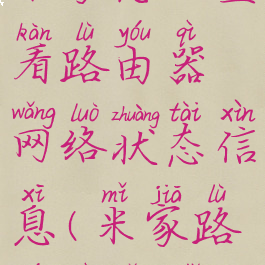 kàn lù yóu qì
看路由器
wǎng luò zhuàng tài xìn
网络状态信
xī mǐ jiā lù
息(米家路